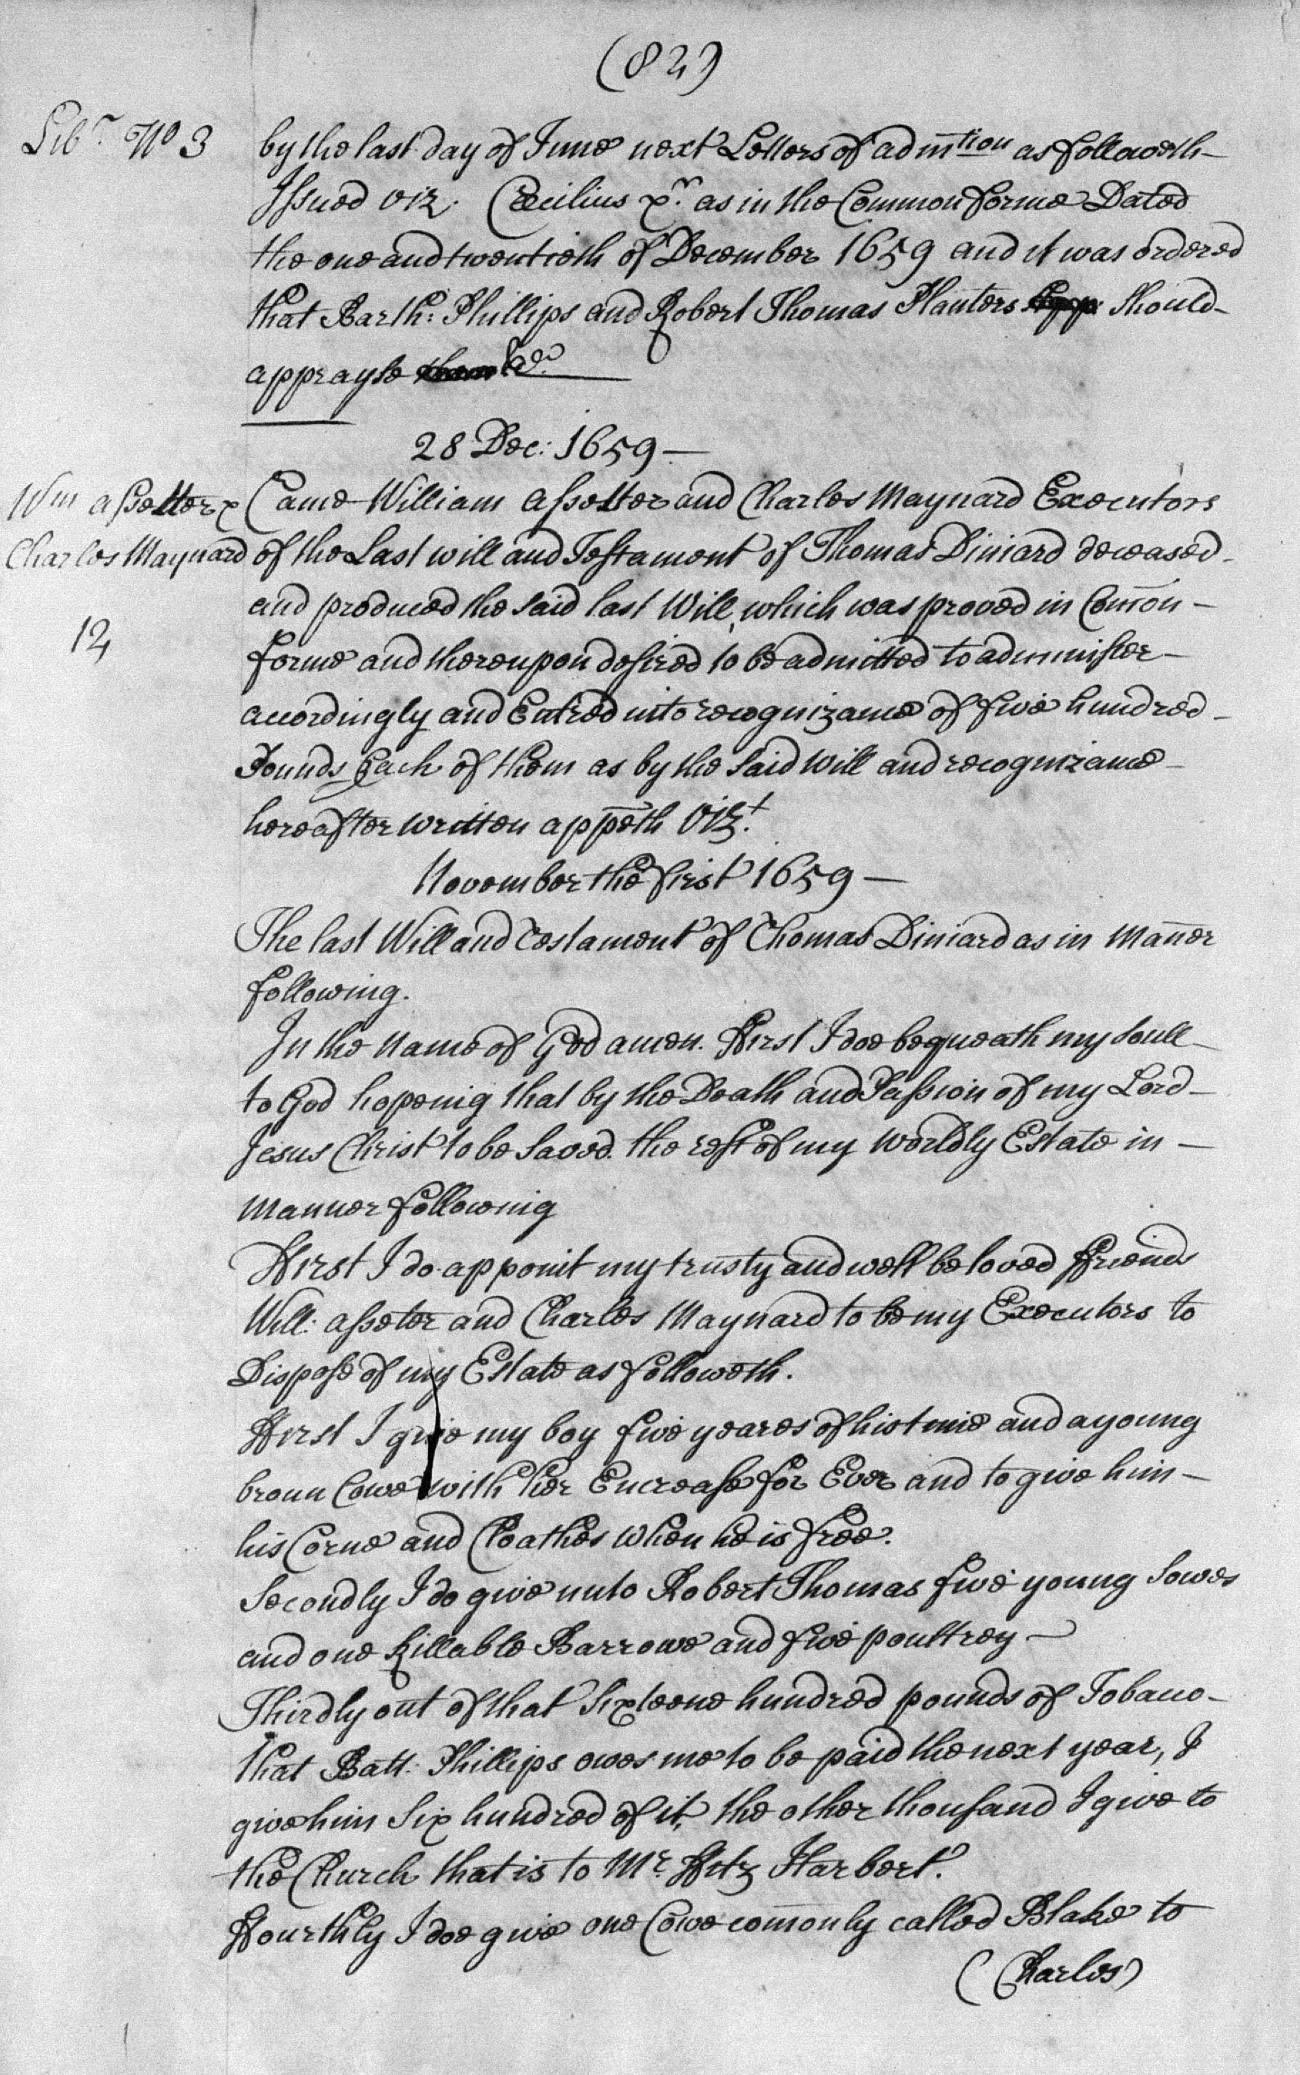 (82)
Libr. No 3
by the last day of June next Letters of admtion as followeth
Issued viz. Cæcilius &c. as in the Common forme Dated
the one and twentieth of December 1659 and it was ordered
that Barth: Phillips and Robert Thomas Planters should
apprayse &c.
28 Dec: 1659
Wm assetter &
Charles Maynard
12
Came William assetter and Charles Maynard Executors
of the Last will and Testament of Thomas Diniard deceased
and produced the said last Will, which was proved in Comon
forme and thereupon desired to be admitted to administer
accordingly and Entred into recognizance of five hundred
Pounds Each of them as by the said will and recognizance
hereafter written appeth Vizt.
November the first 1659
The last Will and testament of Thomas Diniard as in maner
following.
In the name of God amen. First I doe bequeath my soull
to God hopeing that by the Death and Passion of my Lord
Jesus Christ to be saved. the rest of my worldly Estate in
manner following
First I do appoint my trusty and well beloved Friends
Will: asseter and Charles Maynard to be my Executors to
Dispose of my Estate as followeth.
First I give my boy five yeares of his time and a young
broun Cowe with her Encrease for Ever and to give him
his Corne and Cloathes when he is free.
Secondly I do give unto Robert Thomas five young sowes
and one killable Barrowe and five poultrey
Thirdly out of that sixteene hundred pounds of Tobacco
that Batt: Phillips owes me to be paid the next year, I
give him six hundred of it, the other thousand I give to
the Church that is to Mr. Fitz Harbert.
Fourthly I doe give one Cowe comonly called Blake to
(Charles)